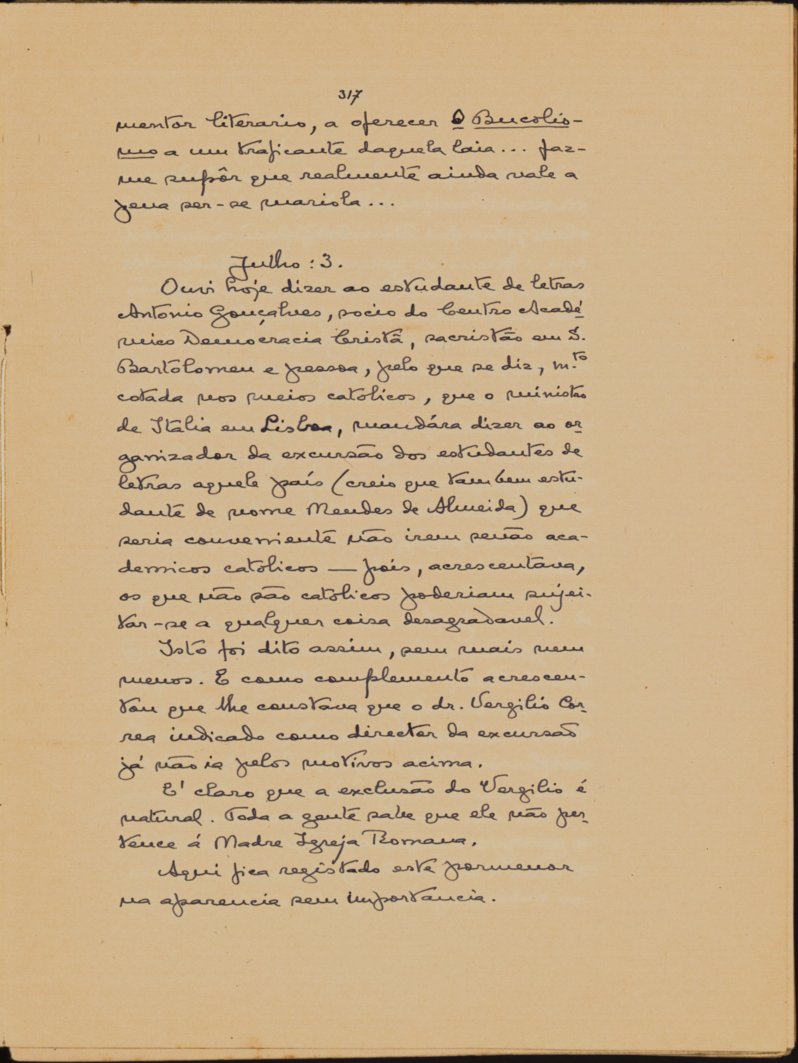 317
mentor literario, a oferecer O Bucolis-
mo a um traficante daquela laia... faz-
me supôr que realmente ainda vale a
pena ser-se mariola...
Julho: 3.
Ouvi hoje dizer ao estudante de letras
Antonio Gonçalves, socio do Centro Acadé-
mico Democracia Cristã, sacristão em S.
Bartolomeu e pessoa, pelo que se diz, m.to
cotada nos meios catolicos, que o ministro
de Italia em Lisboa, mandára dizer ao or-
ganizador da excursão dos estudantes de
letras aquele país (creio que tambem estu-
dante de nome Mendes de Almeida) que
seria conveniente não irem senão aca-
demicos catolicos — pois, acrescentava,
os que não são catolicos poderiam sujei-
tar-se a qualquer coisa desagradavel.
Isto foi dito assim, sem mais nem
menos. E como complemento acrescen-
tou que lhe constava que o dr. Vergilio Cor-
rea indicado como director da excursão
já não ia pelos motivos acima.
E' claro que a exclusão do Vergilio é
natural. Toda a gente sabe que ele não per-
tence á Madre Igreja Romana.
Aqui fica registado este pormenor
na aparencia sem importancia.